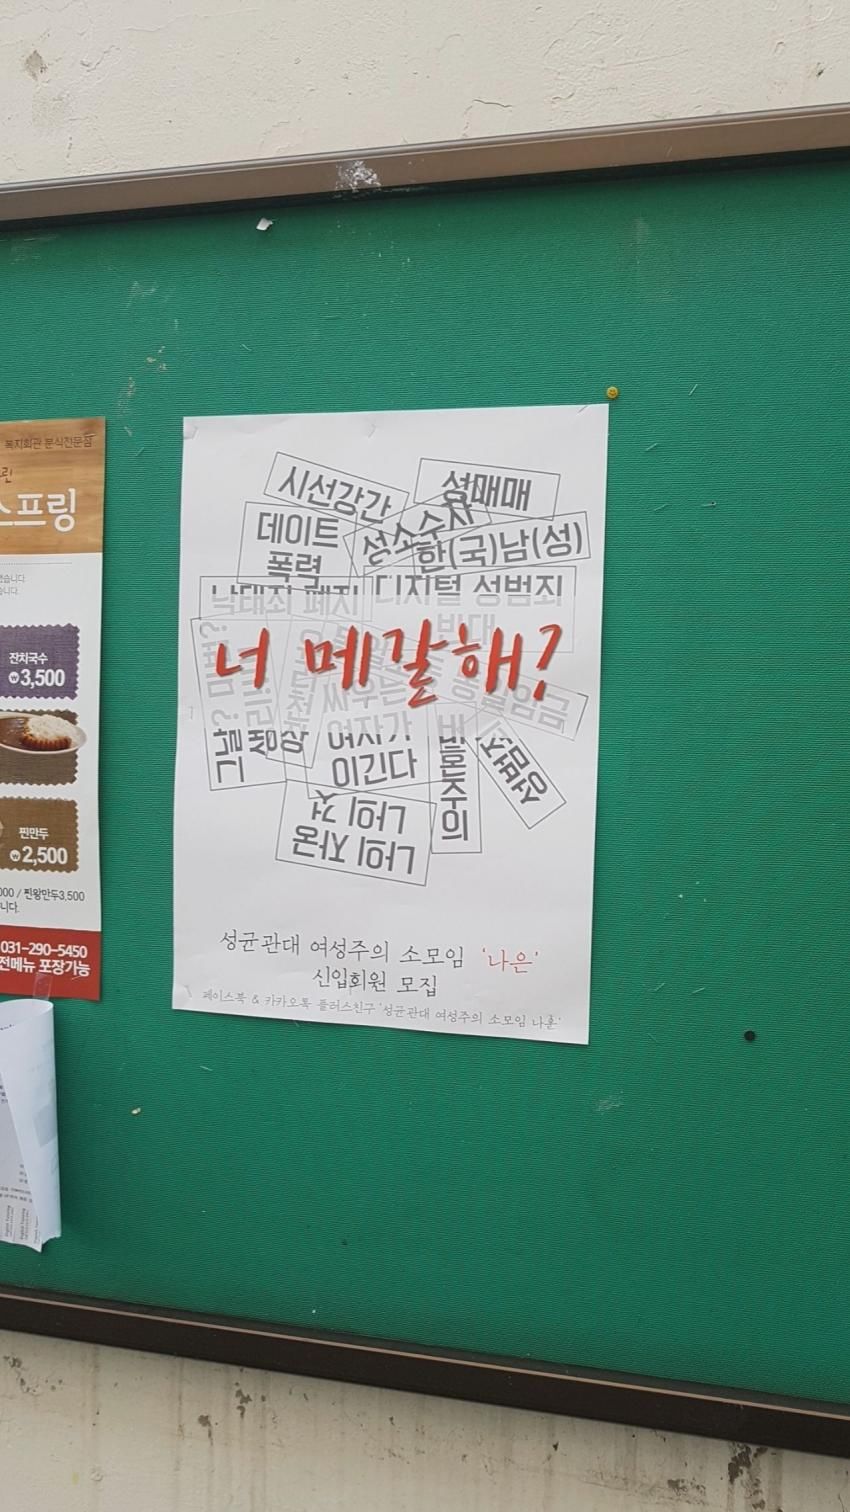 복지회관 분식전문점
스프링
잔치국수
₩3,500
찐만두
₩2,500
000 / 찐왕만두3,500
니다.
031-290-5450
전메뉴 포장가능
시선강간
성매매
데이트
폭력
성소수자
한(국)남(성)
낙태죄 폐지
디지털 성범죄
반대
너 메갈해?
싸우는
여자가
이긴다
동일임금
그날?
생리
비혼주의
성범죄
나의 자궁
나의 것
성균관대 여성주의 소모임 '나은'
신입회원 모집
페이스북 & 카카오톡 플러스친구 '성균관대 여성주의 소모임 나은'